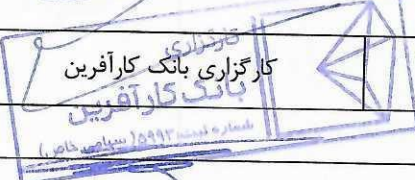 کارگزاری بانک کارآفرین
کارگزاری
بانک کارآفرین
شماره ثبت: ۵۹۹۲ (سهامی خاص)